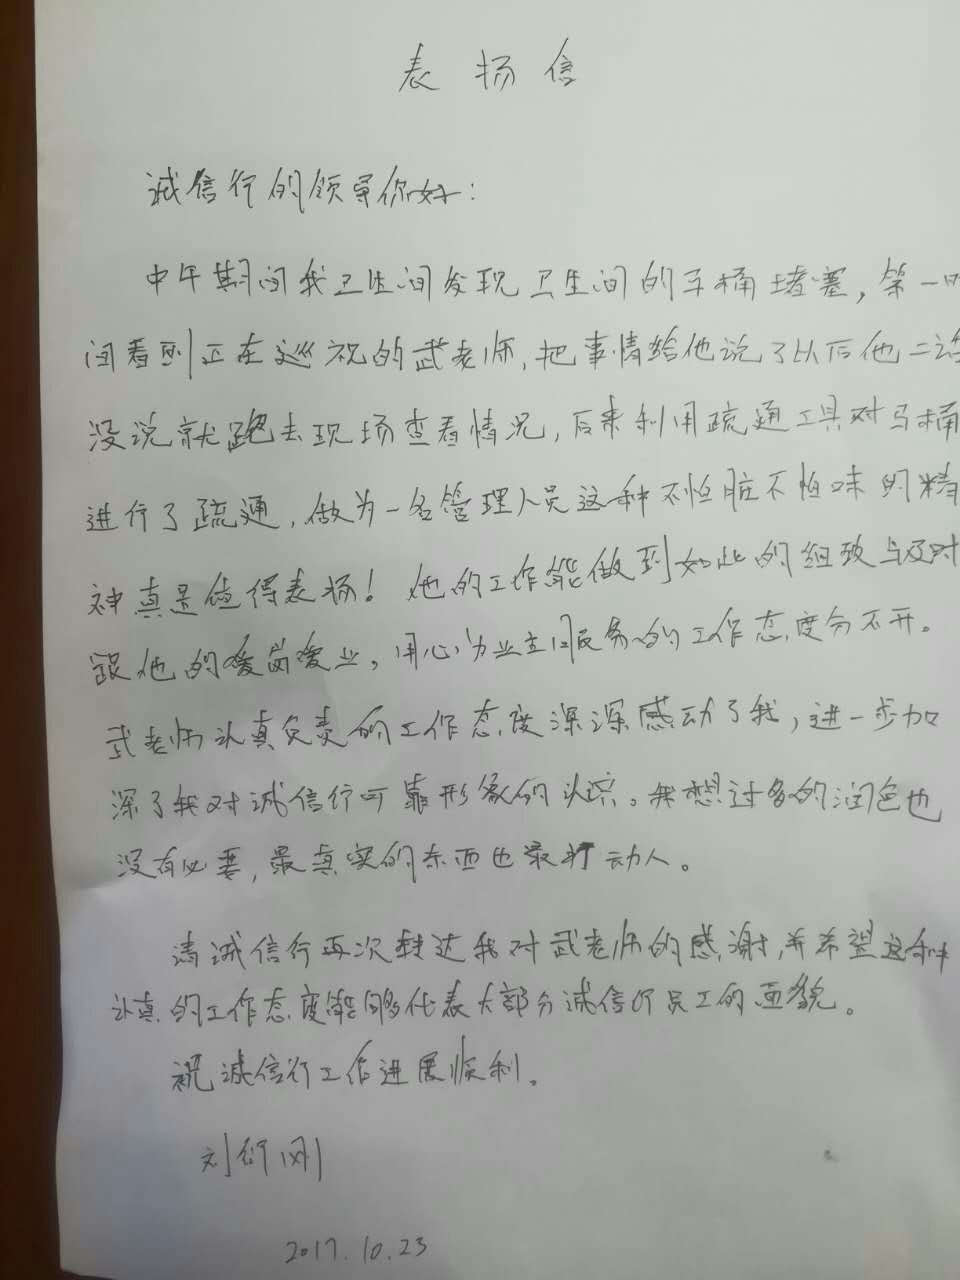 表扬信
诚信行的领导你好：
中午期间我卫生间发现卫生间的马桶堵塞，第一时
间看到正在巡视的武老师，把事情给他说了以后他二话
没说就跑去现场查看情况，后来利用疏通工具对马桶
进行了疏通，做为一名管理人员这种不怕脏不怕味的精
神真是值得表扬！他的工作能做到如此的细致与及时
跟他的爱岗爱业，用心为业主服务的工作态度分不开。
武老师认真负责的工作态度深深感动了我，进一步加
深了我对诚信行可靠形象的认识。我想过多的润色也
没有必要，最真实的东西也最打动人。
请诚信行再次转达我对武老师的感谢，并希望这种
认真的工作态度能够代表大部分诚信行员工的面貌。
祝诚信行工作进展顺利。
刘衍刚
2017.10.23